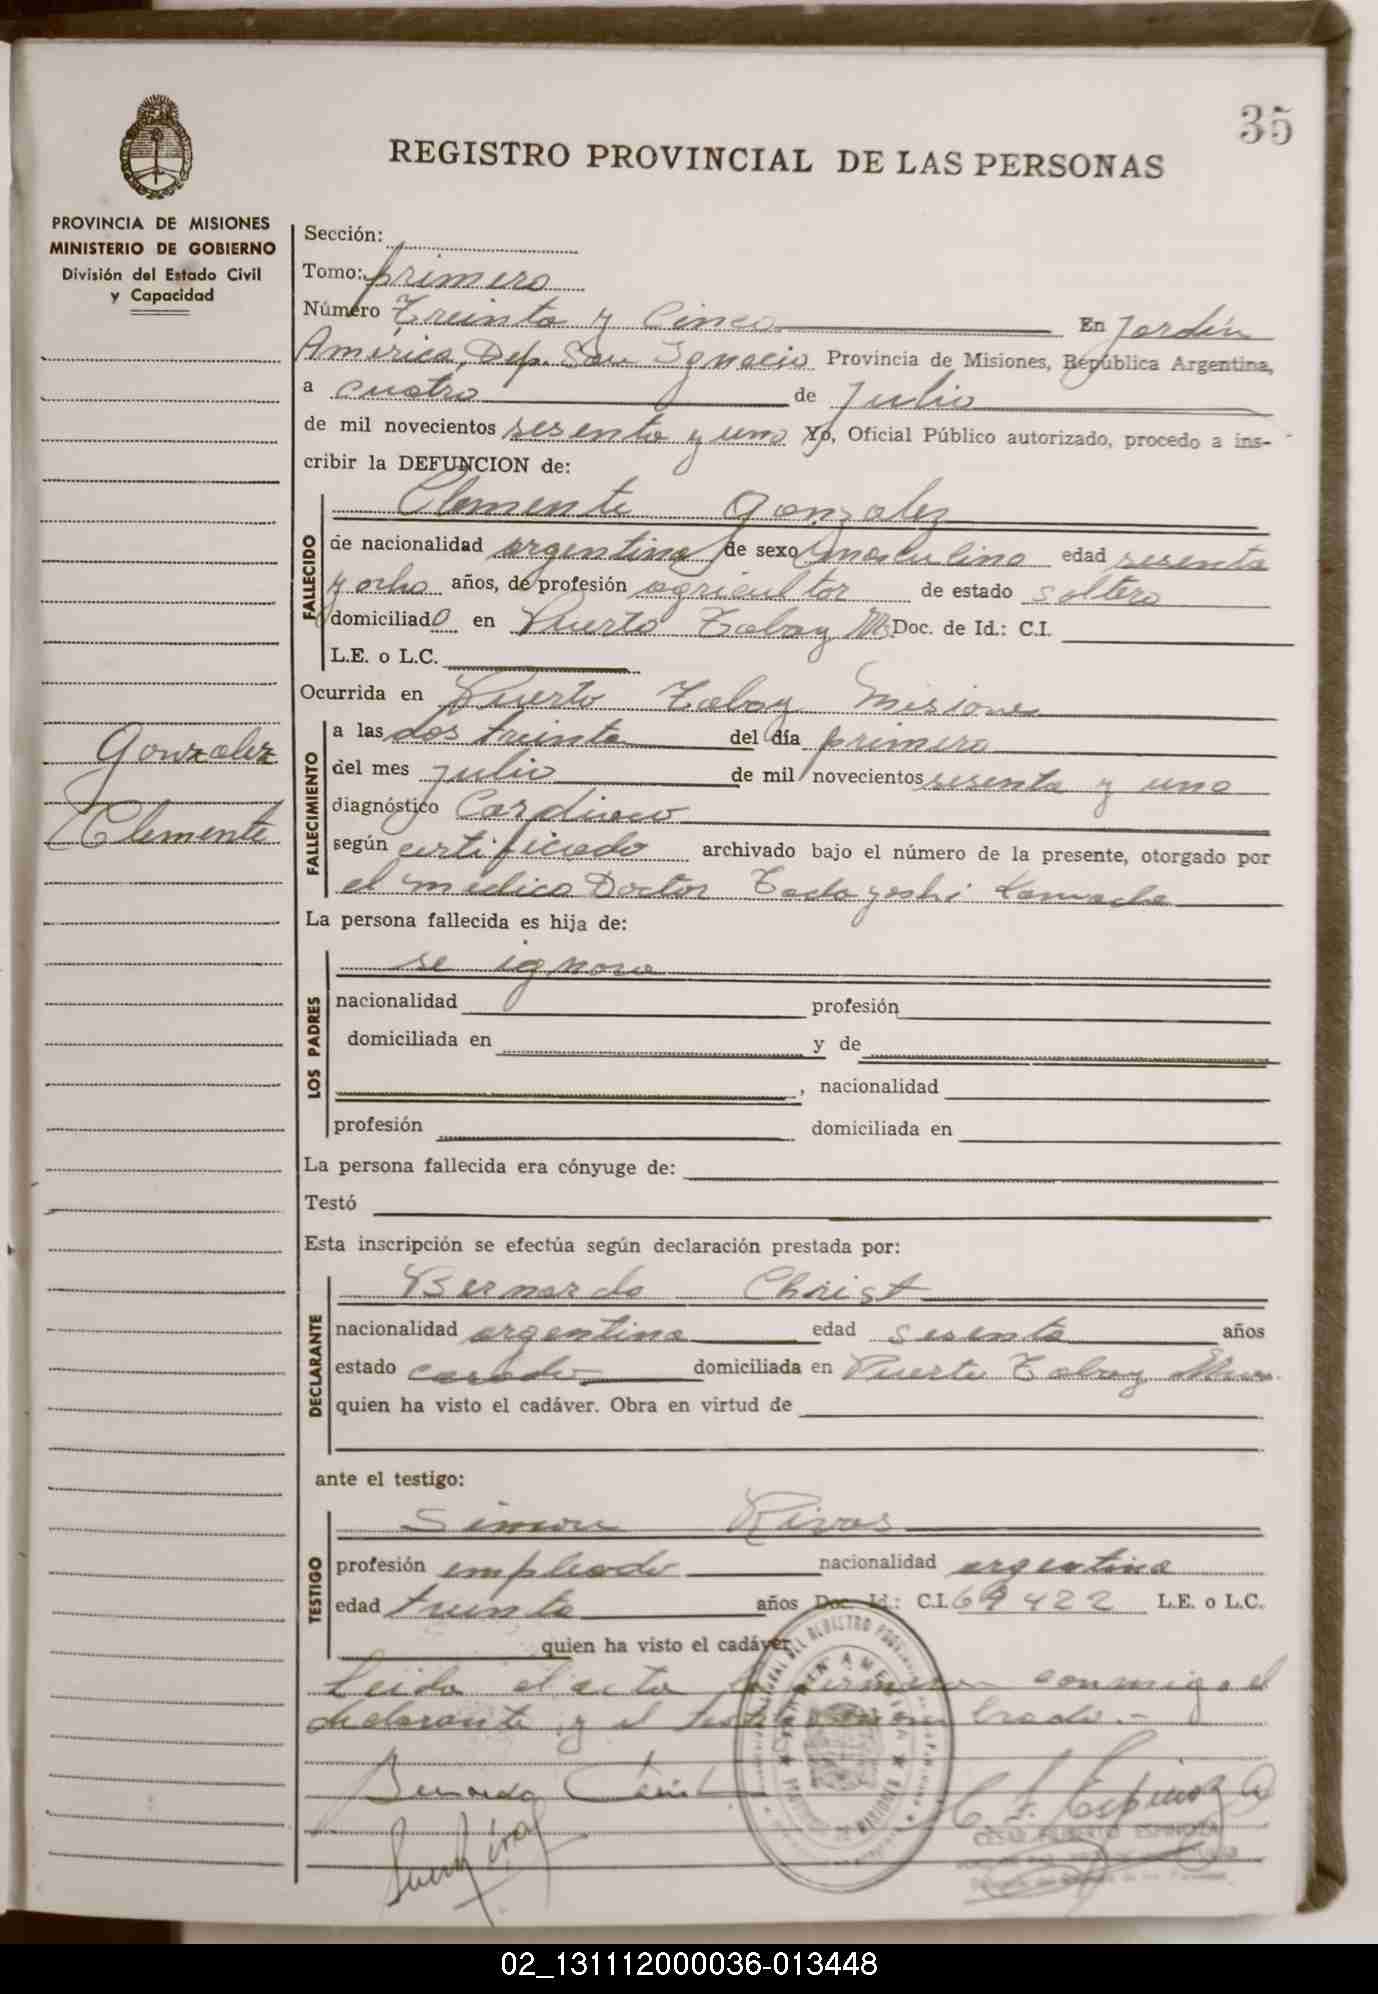 35
REGISTRO PROVINCIAL DE LAS PERSONAS
PROVINCIA DE MISIONES
MINISTERIO DE GOBIERNO
División del Estado Civil
y Capacidad
Gonzalez
Clemente
Sección:
Tomo: primero
Número Treinta y Cinco En Jardín
América, Dep. San Ignacio Provincia de Misiones, República Argentina,
a cuatro de Julio
de mil novecientos sesenta y uno Yo, Oficial Público autorizado, procedo a ins-
cribir la DEFUNCION de:
FALLECIDO
Clemente Gonzalez
de nacionalidad argentina de sexo masculino edad sesenta
y ocho años, de profesión agricultor de estado soltero
domiciliado en Puerto Tabay Doc. de Id.: C.I.
L.E. o L.C.
Ocurrida en Puerto Tabay Misiones
FALLECIMIENTO
a las dos treinta del día primero
del mes julio de mil novecientos sesenta y uno
diagnóstico Cardiaco
según certificado archivado bajo el número de la presente, otorgado por
el medico Doctor Tadayoshi
La persona fallecida es hija de:
LOS PADRES
se ignora
nacionalidad profesión
domiciliada en y de
, nacionalidad
profesión domiciliada en
La persona fallecida era cónyuge de:
Testó
Esta inscripción se efectúa según declaración prestada por:
DECLARANTE
Bernardo Christ
nacionalidad argentina edad sesenta años
estado casado domiciliada en Puerto Tabay
quien ha visto el cadáver. Obra en virtud de
ante el testigo:
TESTIGO
Simon Rivas
profesión empleado nacionalidad argentina
edad treinta años Doc. Id.: C.I. 69422 L.E. o L.C.
quien ha visto el cadáver
Leida el acta la firman conmigo el
declarante y el testigo nombrado.-
JARDIN AMERICA
PROVINCIA DE MISIONES
Bernardo Christ
C F Espinoza
CESAR FILBERTO ESPINOZA
02_131112000036-013448